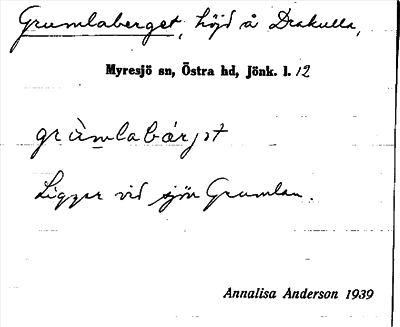 Grumlaberget, höjd å Drakulla,
Myresjö sn, Östra hd, Jönk. l. 12
grùmlabárjət
Ligger vid sjön Grumlan.
Annalisa Anderson 1939